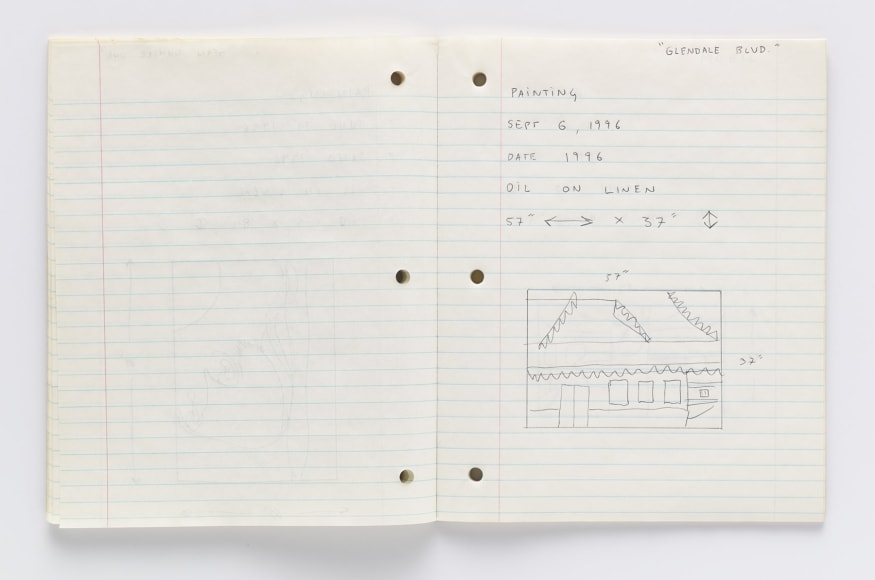 "GLENDALE BLVD."
PAINTING
SEPT 6, 1996
DATE 1996
OIL ON LINEN
57" ↔ × 37" ↕
57"
37"